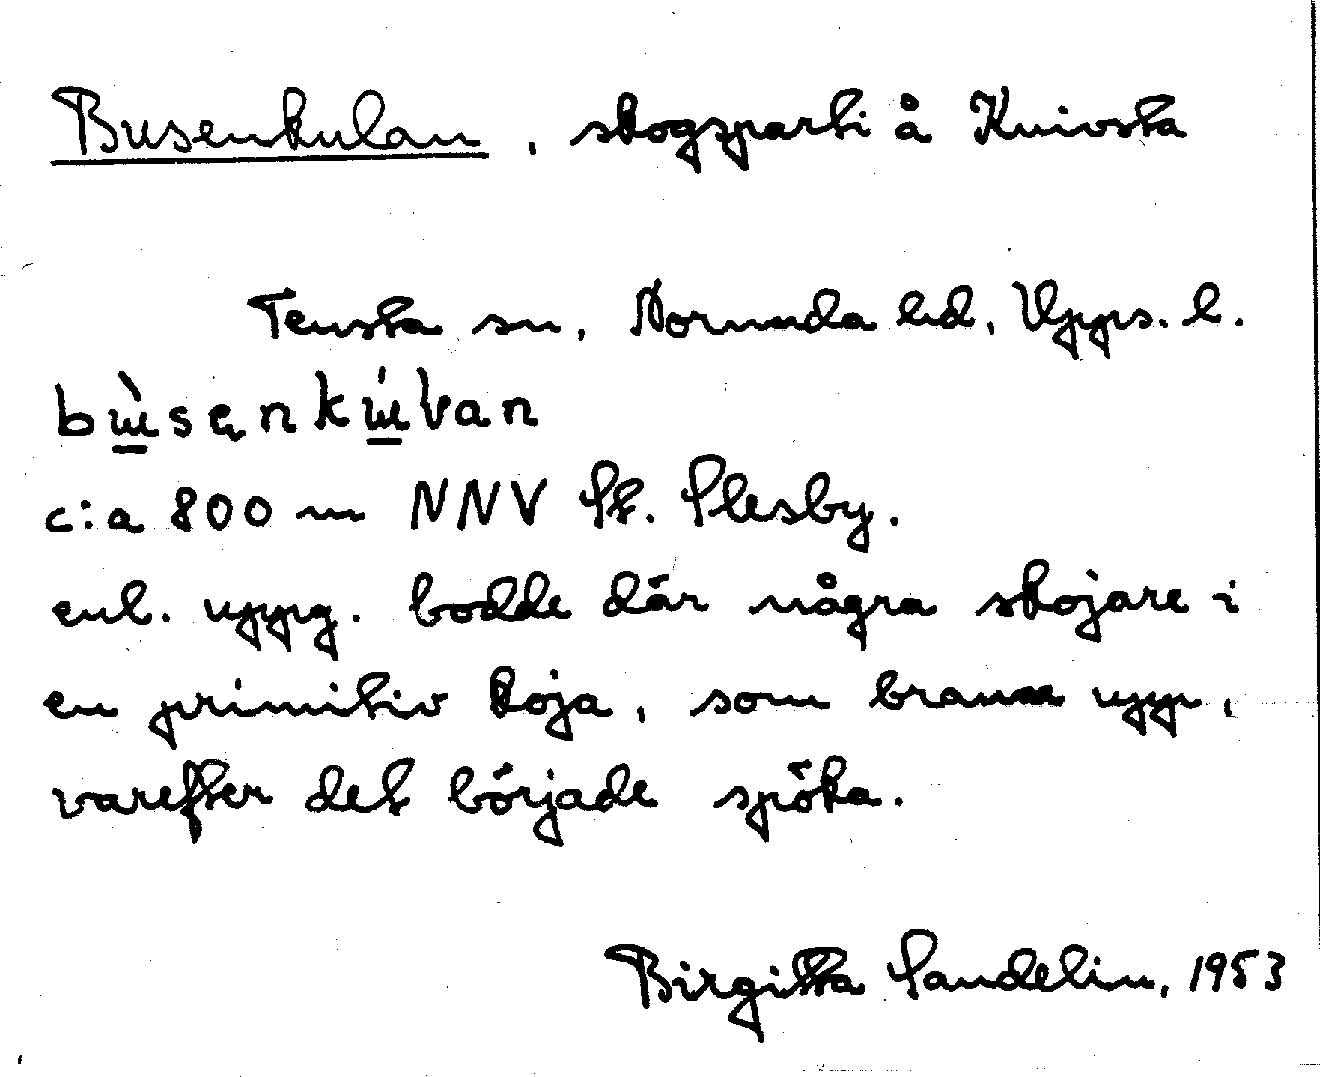 Busenkulan, skogsparti å Knivsta
Tensta sn, Norunda hd, Upps. l.
c:a 800 m NNV St. Plesby.
enl. uppg. bodde där några skojare i
en primitiv koja, som brann upp,
varefter det började spöka.
Birgitta Sandelin, 1953